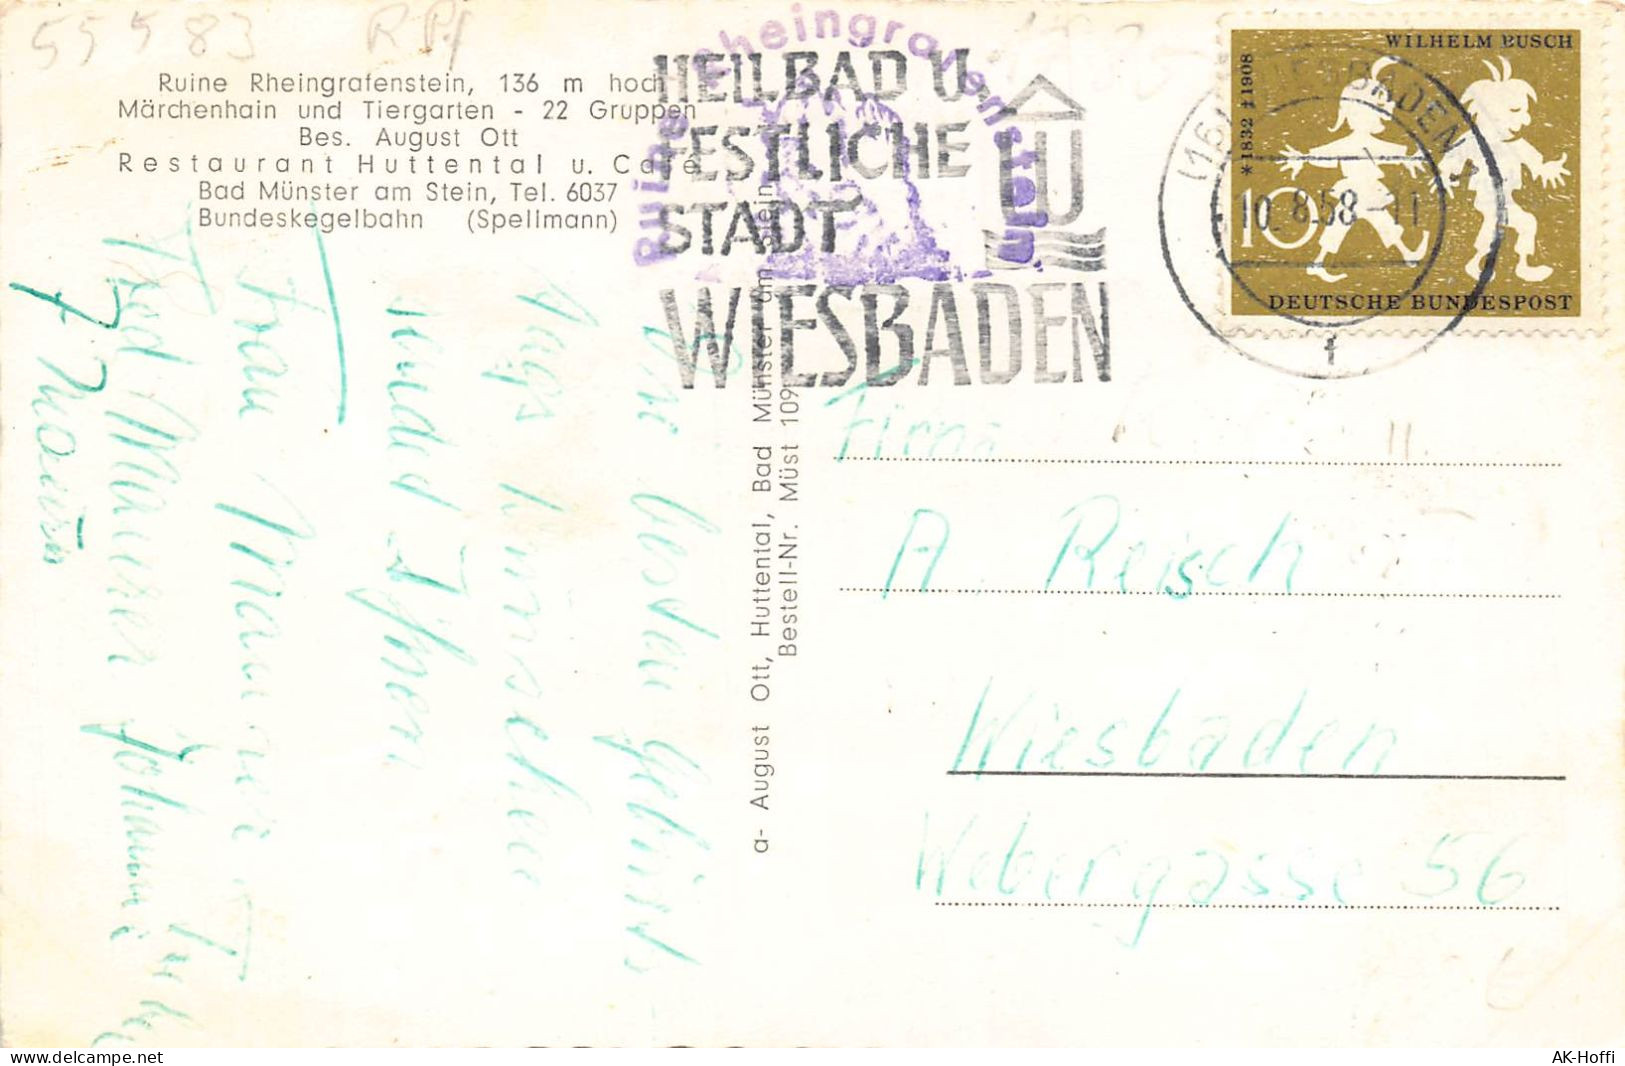 55583 RPf
Ruine Rheingrafenstein, 136 m hoch
Märchenhain und Tiergarten - 22 Gruppen
Bes. August Ott
Restaurant Huttental u. Café
Bad Münster am Stein, Tel. 6037
Bundeskegelbahn (Spellmann)
Ruine Rheingrafenstein
HEILBAD U.
FESTLICHE
STADT
WIESBADEN
(16) WIESBADEN 1
10. 8.58 - 11
f
WILHELM BUSCH
*1832 †1908
10
DEUTSCHE BUNDESPOST
Die besten Geburts
Tags wünsche
sendet Ihnen
Frau Maurer
a- August Ott, Huttental, Bad Münster am Stein
Bestell-Nr. Müst 109
Firma
A. Reisch
Wiesbaden
Webergasse 56
www.delcampe.net
AK-Hoffi